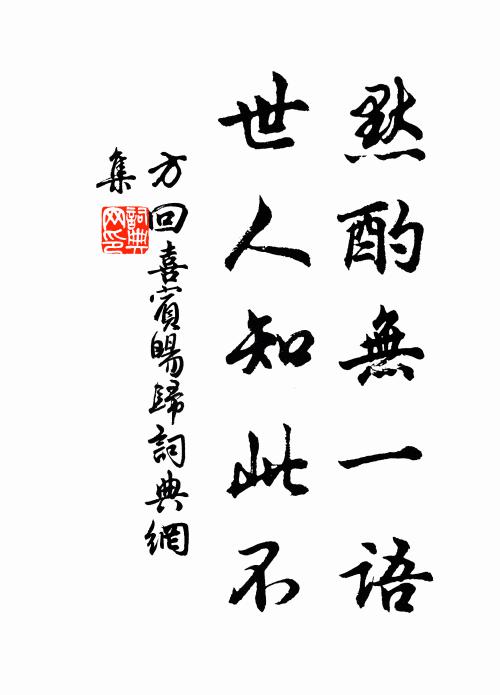 默酌無一語
世人知此不
方回喜賓暘歸詞典網
集
詞典网印